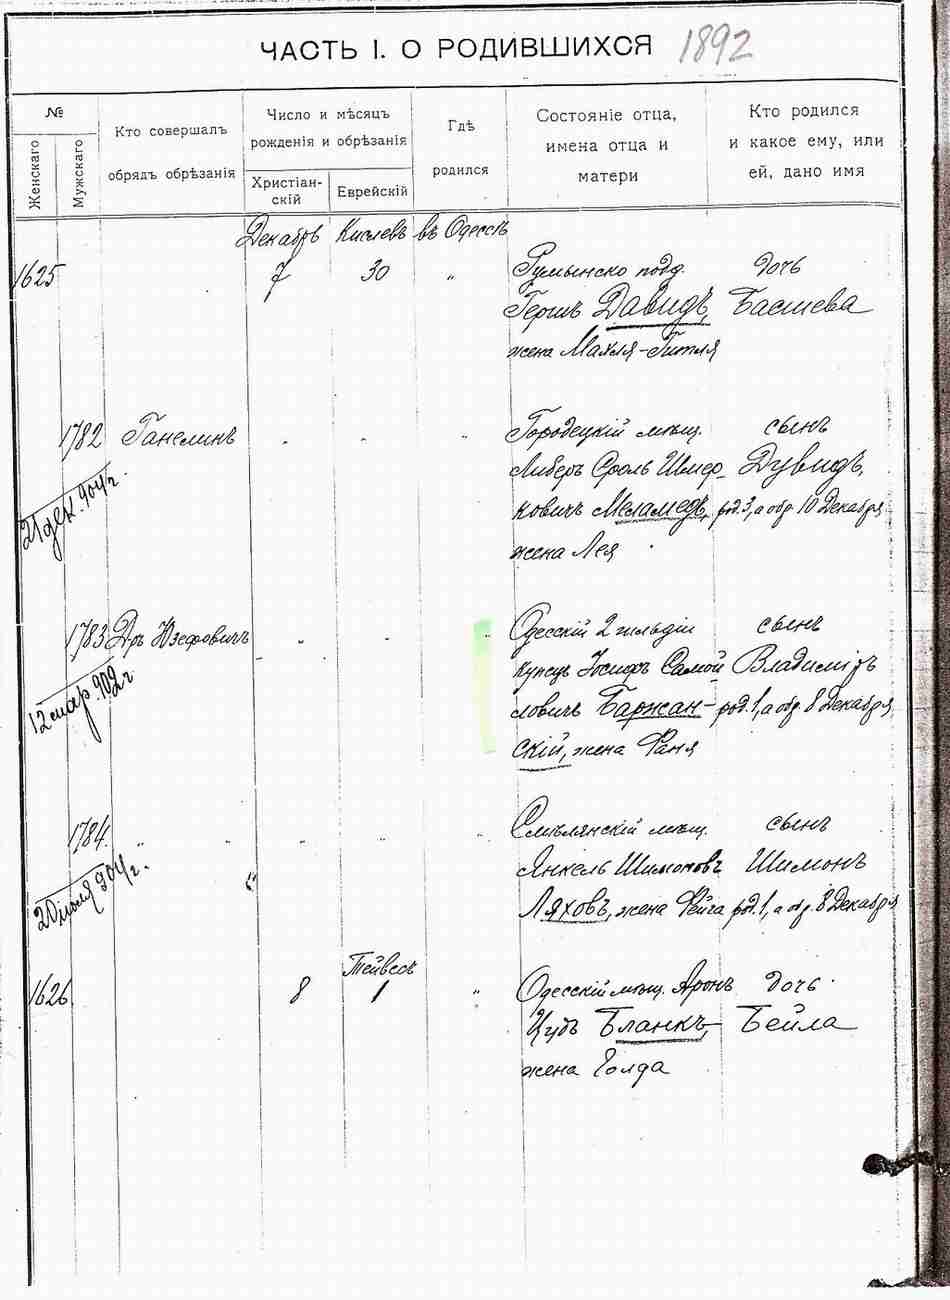 ЧАСТЬ I. О РОДИВШИХСЯ 1892
№
Женскаго
Мужскаго
Кто совершалъ
обрядъ обрѣзанія
Число и мѣсяцъ
рожденія и обрѣзанія
Христіан-
скій
Еврейскій
Гдѣ
родился
Состояніе отца,
имена отца и
матери
Кто родился
и какое ему, или
ей, дано имя
Декабрь Кислевъ въ Одессѣ
1625 7 30 „ Румынско подд. дочь
Гершъ Давидъ, Басшева
жена Махля-Гитля
1782 Ганелинъ „ „ „ Городецкій мѣщ. сынъ
21 дек. 904 г.
Либеръ Сроль Шмер- Дувидъ,
ковичъ Меламедъ, род. 3, а обр. 10 Декабря
жена Лея
1783 Д-ръ Юзефовичъ „ „ „ Одесскій 2 гильдіи сынъ
12 мар. 902 г.
купецъ Іосифъ Самой- Владиміръ
ловичъ Баржан- род. 1, а обр. 8 Декабря
скій, жена Фаня
1784 „ „ „ „ Смѣлянскій мѣщ. сынъ
20 іюля 904 г.
Янкель Шимоновъ Шимонъ
Ляховъ, жена Фейга род. 1, а обр. 8 Декабря
Тейвесъ
1626 8 1 „ Одесскій мѣщ. Аронъ дочь
Цубъ Бланкъ, Бейла
жена Голда